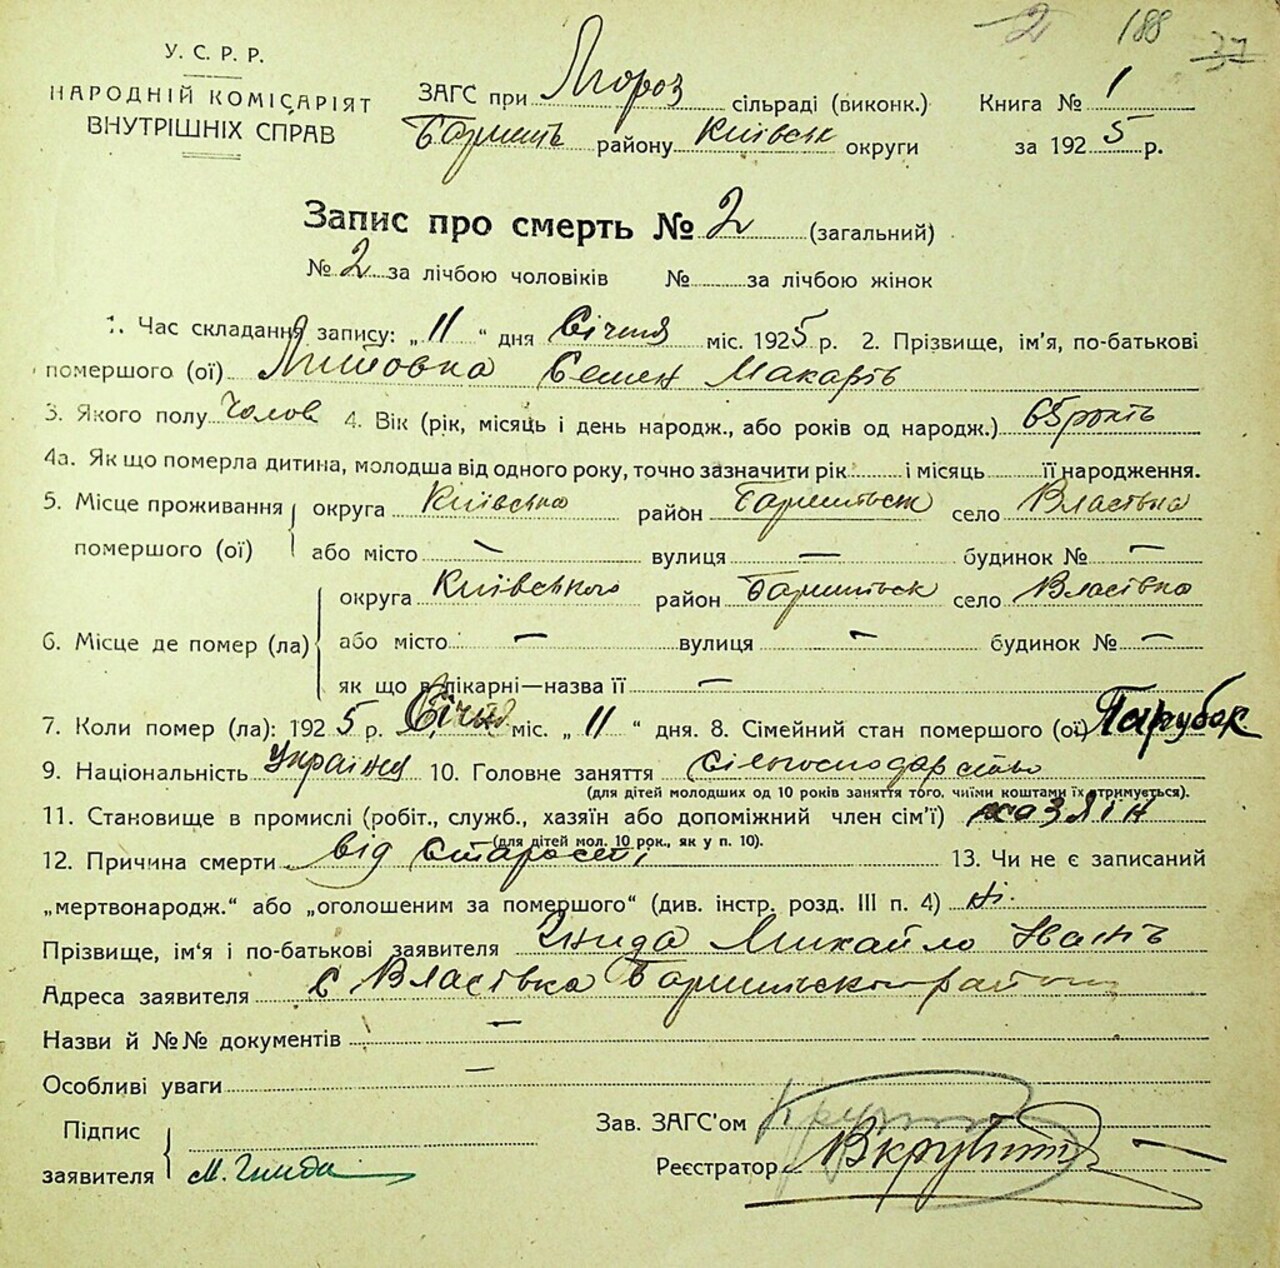 2 188 37
У. С. Р. Р.
НАРОДНІЙ КОМІСАРІЯТ
ВНУТРІШНІХ СПРАВ
ЗАГС при Мороз сільраді (виконк.) Книга № 1
Баришь району Київськ округи за 1925 р.
Запис про смерть № 2 (загальний)
№ 2 за лічбою чоловіків № за лічбою жінок
1. Час складання запису: „ 11 “ дня Січня міс. 1925 р. 2. Прізвище, ім'я, по-батькові
помершого (ої) Семен Макарів
3. Якого полу Чолов 4. Вік (рік, місяць і день народж., або років од народж.) 65 років
4а. Як що померла дитина, молодша від одного року, точно зазначити рік і місяць її народження.
5. Місце проживання помершого (ої) округа Київська район Баришівськ село Власівка
або місто — вулиця — будинок № —
6. Місце де помер (ла) округа Київського район Баришівськ село Власівка
або місто — вулиця — будинок № —
як що в лікарні—назва її —
7. Коли помер (ла): 1925 р. Січня міс. „ 11 “ дня. 8. Сімейний стан помершого (ої) Парубок
9. Національність Україня 10. Головне заняття сільгосподарство
(для дітей молодших од 10 років заняття того, чиїми коштами їх отримується).
11. Становище в промислі (робіт., служб., хазяїн або допоміжний член сім'ї) хазяїн
(для дітей мол. 10 рок., як у п. 10).
12. Причина смерти від старості 13. Чи не є записаний
„мертвонародж.“ або „оголошеним за помершого“ (див. інстр. розд. III п. 4) ні.
Прізвище, ім'я і по-батькові заявителя Гнида Михайло Іванів
Адреса заявителя с Власівка Баришівського району
Назви й №№ документів —
Особливі уваги —
Підпис заявителя М. Гнида
Зав. ЗАГС'ом
Реєстратор